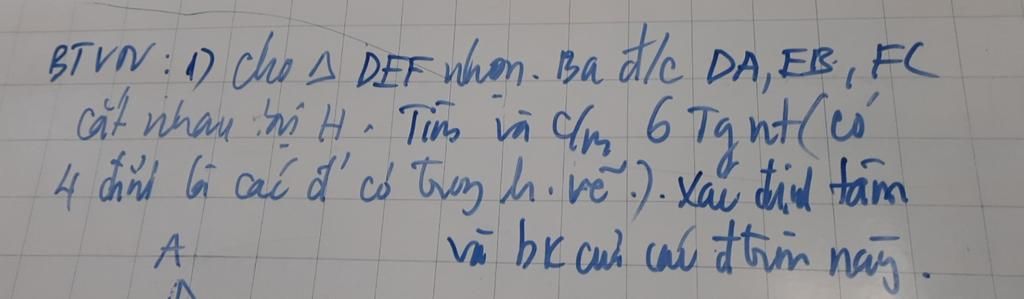 BTVN: 1) Cho Δ DEF nhọn. Ba đ/c DA, EB, FC
cắt nhau tại H. Tìm và c/m 6 Tg nt (có
4 đỉnh là các đ' có trong h. vẽ). Xác định tâm
và bk của các đ tròn này.
A